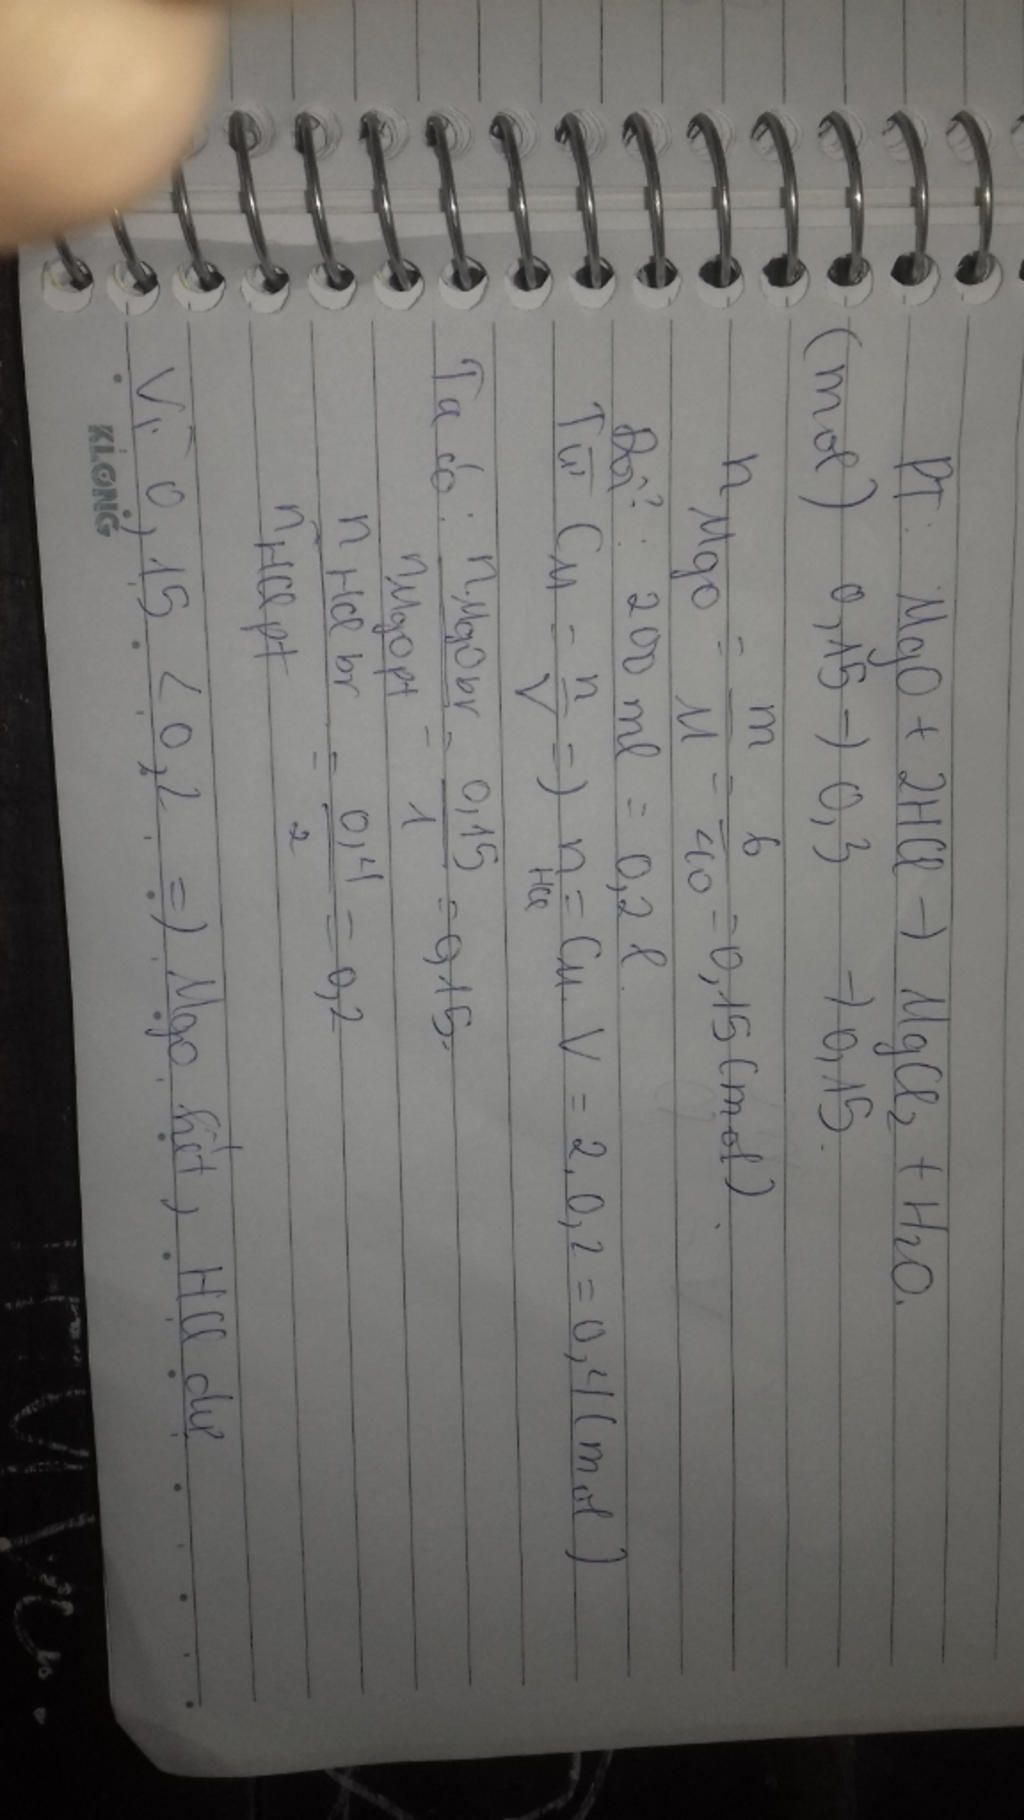 PT: MgO + 2HCl -> MgCl2 + H2O.
(mol) 0,15 -> 0,3 -> 0,15.
nMgO = m/M = 6/40 = 0,15 (mol).
Đổi: 200 ml = 0,2 l.
Từ CM = n/V => nHCl = CM. V = 2.0,2 = 0,4 (mol)
Ta có: nMgO br/nMgO pt = 0,15/1 = 0,15.
nHCl br/nHCl pt = 0,4/2 = 0,2
Vì 0,15 < 0,2 => MgO hết, HCl dư
KLONG